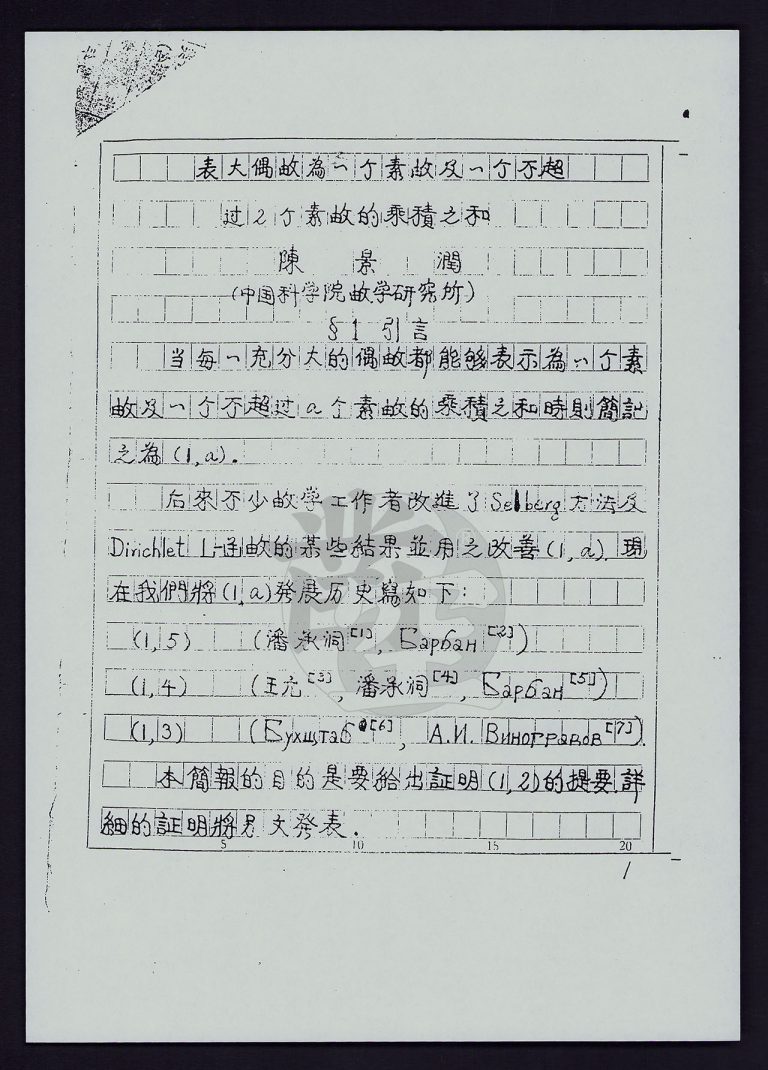 表大偶敀為一个素敀及一个不超
过2个素敀的乘積之和
陳景潤
(中国科学院敀学研究所)
§1 引言
当每一充分大的偶敀都能够表示為一个素
敀及一个不超过a个素敀的乘積之和時則簡記
之為(1,a).
后來不少敀学工作者改進了Selberg方法及
Dirichlet L-函敀的某些結果並用之改善(1,a).現
在我們將(1,a)發展历史寫如下:
(1,5) (潘承洞[1], Барбан[2])
(1,4) (王元[3], 潘承洞[4], Барбан[5])
(1,3) (Бухштаб[6], А.И. Виноградов[7]).
本簡報的目的是要給出証明(1,2)的提要.詳
細的証明將另文發表.
5 10 15 20
1